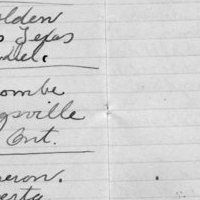 olden
s Texas
del.
ombe
gsville
Ont.
eron.
erta